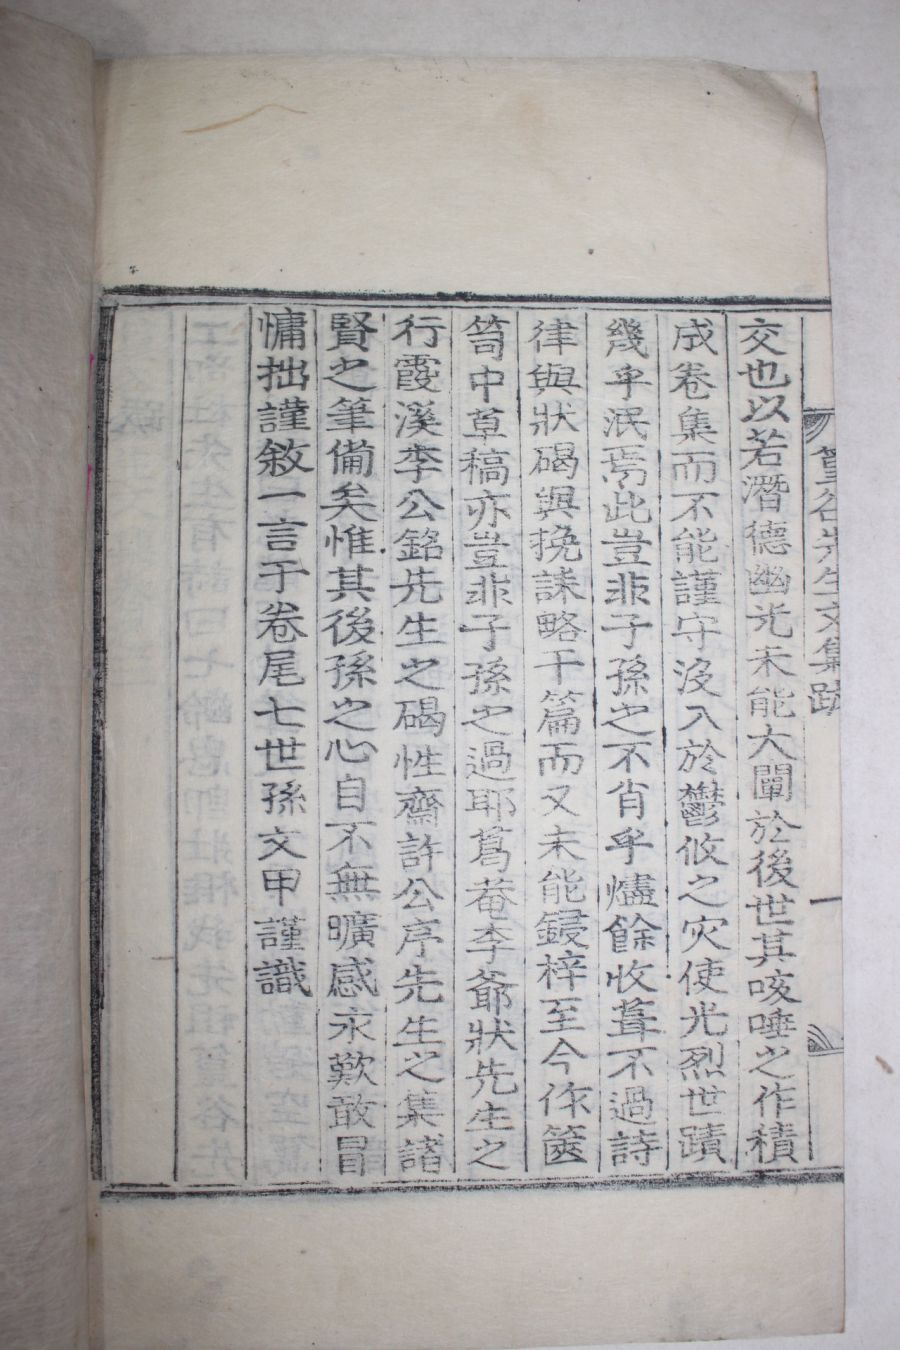 篁谷先生文集跋 一
交也以若潛德幽光未能大闡於後世其咳唾之作積
成卷集而不能謹守沒入於鬱攸之灾使光烈世蹟
幾乎泯焉此豈非子孫之不肖乎燼餘收葺不過詩
律與狀碣與挽誄略干篇而又未能鋟梓至今作篋
笥中草稿亦豈非子孫之過耶葛菴李爺狀先生之
行霞溪李公銘先生之碣性齋許公序先生之集諸
賢之筆備矣惟其後孫之心自不無曠感永歎敢冒
慵拙謹敘一言于卷尾七世孫文甲謹識